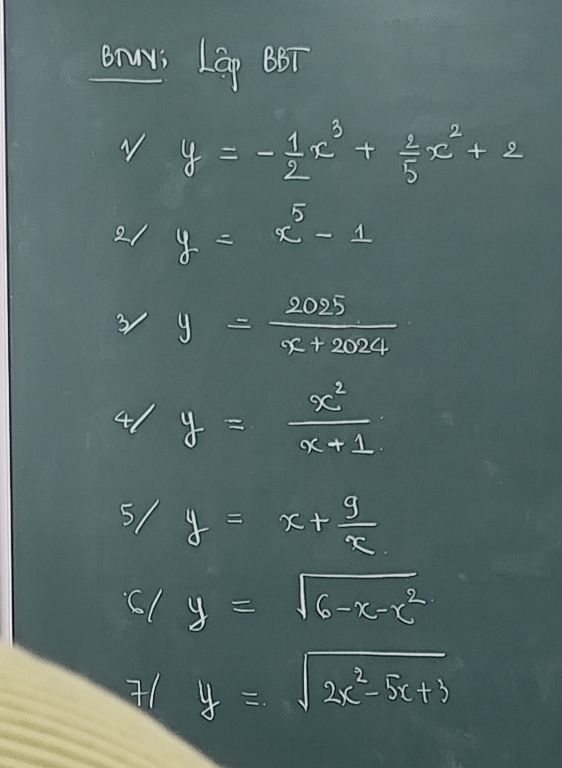 BTVN: Lập BBT
1/ y = -\frac{1}{2}x^3 + \frac{2}{5}x^2 + 2
2/ y = x^5 - 1
3/ y = \frac{2025}{x + 2024}
4/ y = \frac{x^2}{x + 1}
5/ y = x + \frac{9}{x}
6/ y = \sqrt{6 - x - x^2}
7/ y = \sqrt{2x^2 - 5x + 3}